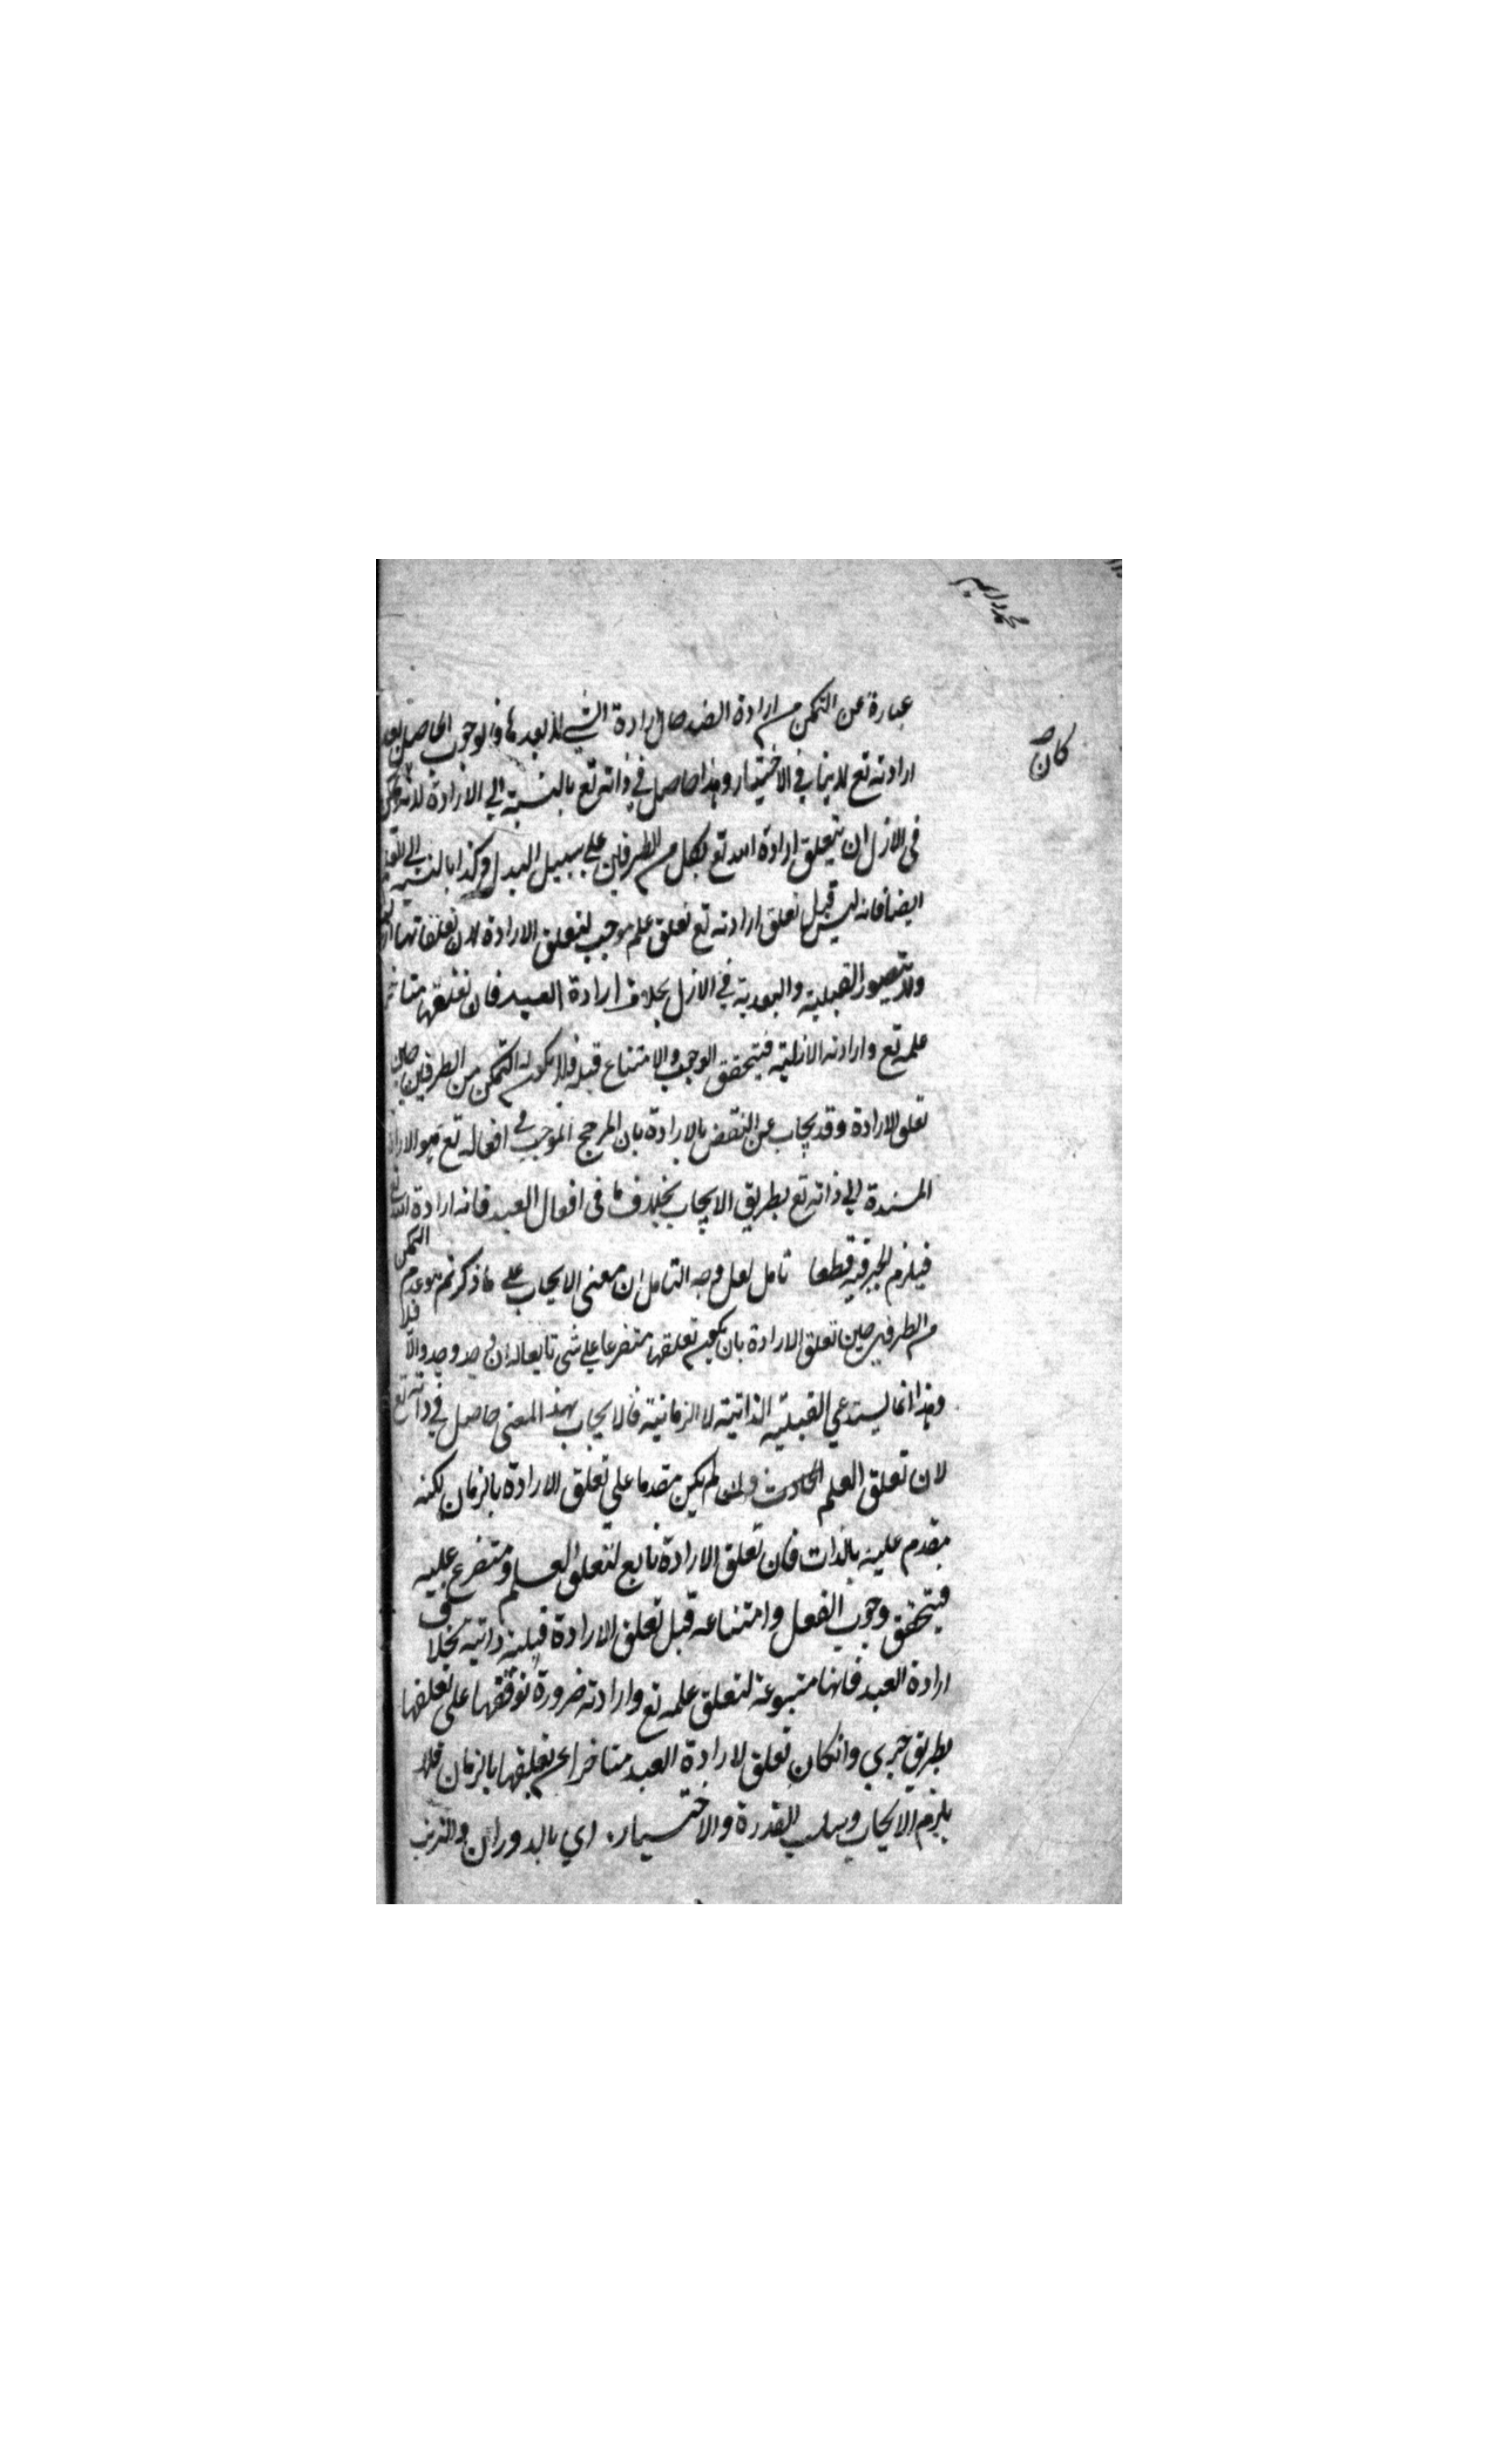 كان صح
عبارة عن التمكن من ارادة الضد حال ارادة الشيء لا بعدها فالوجوب الحاصل بعد
ارادته تع لا ينافي الاختيار وهذا حاصل في ذاته تع بالنسبة الي الارادة لانه يمكن
في الازل ان يتعلق ارادة الله تع بكل من الطرفين علي سبيل البدل وكذا بالنسبة الي
ايضا فانه ليس قبل تعلق ارادته تع تعلق علم موجب لتعلق الارادة لان تعلقاتها
ولا يتصور القبلية والبعدية في الازل بخلاف ارادة العبد فان تعلقها متاخر
علمه تع وارادته الازلية فيتحقق الوجوب والامتناع قبله فلا يكون له التمكن من الطرفين حين
تعلق الارادة وقد يجاب عن النقض بالارادة بان المرجح الموجب في افعاله تع هو الارادة
المسندة الي ذاته تع بطريق الايجاب بخلاف ما في افعال العبد فانه ارادة الله
فيلزم الجبر فيه قطعا تامل لعل وجه التامل ان معني الايجاب علي ما ذكرتم هو عدم التمكن
من الطرفين حين تعلق الارادة بان يكون تعلقها متفرعا علي شي تابعا له ان وجد وجد والا فلا
وهذا انما يستدعي القبلية الذاتية لا الزمانية فالايجاب بهذا المعني حاصل في ذاته تع
لان تعلق العلم الحادث وان لم يكن مقدما علي تعلق الارادة بالزمان لكنه
مقدم عليه بالذات فان تعلق الارادة تابع لتعلق العلم ومتفرع عليه
فيتحقق وجوب الفعل وامتناعه قبل تعلق الارادة قبلية ذاتية بخلاف
ارادة العبد فانها متبوعة لتعلق علمه تع وارادته ضرورة توقفها علي تعلقها
بطريق جري وان كان تعلق لارادة العبد متاخرا عن تعلقها بالزمان فلا
يلزم الايجاب وسلب القدرة والاختيار. اي بالدوران والترتب